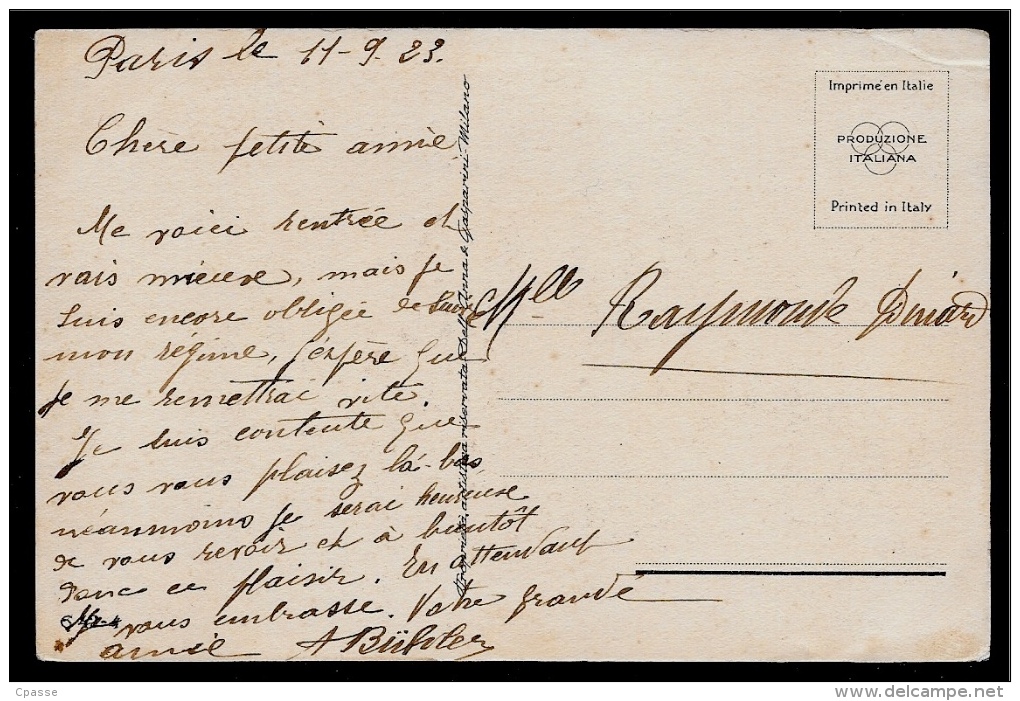 Paris le 11-9-23.
Chère petite amie
Me voici rentrée et
vais mieux, mais je
suis encore obligée de suivre
mon régime, j'espère que
je me remettrai vite.
Je suis contente que
vous vous plaisez là-bas
néanmoins je serai heureuse
de vous revoir et à bientôt
donc ce plaisir. En attendant
je vous embrasse. Votre grande
amie A Bühler
Proprietà artistica riservata Dell'Anna & Gasparini Milano
Imprimé en Italie
PRODUZIONE
ITALIANA
Printed in Italy
Mlle Raymonde Dinard
Cpasse
http://www.delcampe.net